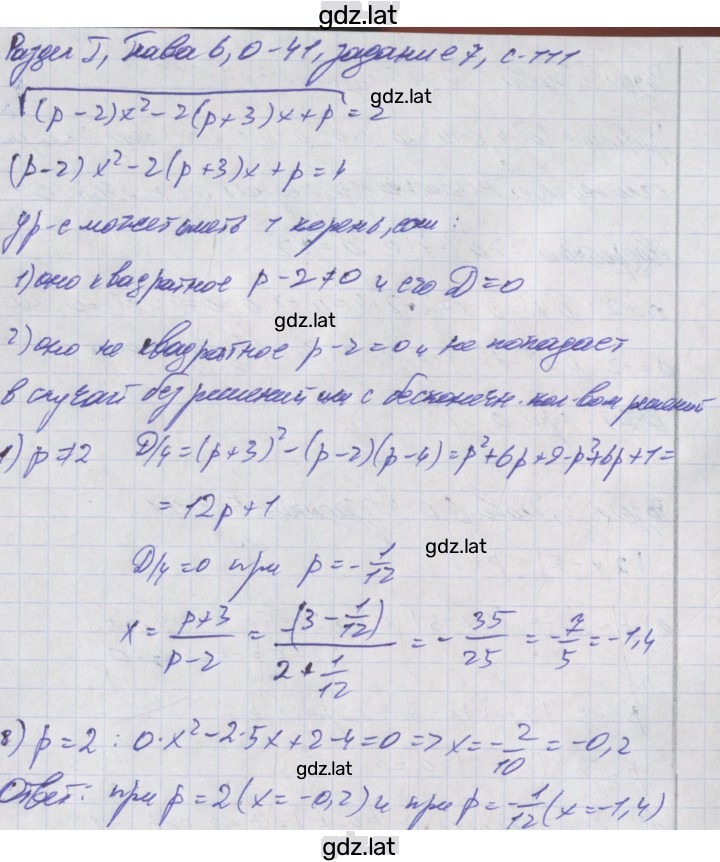 gdz.lat
Раздел I, Глава 6, О-41, задание 7, с-111
√((p-2)x²-2(p+3)x+p) = 2
gdz.lat
(p-2)x²-2(p+3)x+p=4
Ур-е может иметь 1 корень, если:
1) оно квадратное p-2≠0 и его D=0
gdz.lat
2) оно не квадратное p-2=0 и не попадает
в случай без решений или с бесконечн. кол-вом решений
1) p≠2 D/4=(p+3)²-(p-2)(p-4)=p²+6p+9-p²+6p+1=
=12p+1
gdz.lat
D/4=0 при p=-1/12
x = (p+3)/(p-2) = -(3-1/12)/(2+1/12) = -35/25 = -7/5 = -1,4
2) p=2: 0·x²-2·5x+2-4=0 => x=-2/10=-0,2
gdz.lat
Ответ: при p=2 (x=-0,2) и при p=-1/12 (x=-1,4)
gdz.lat